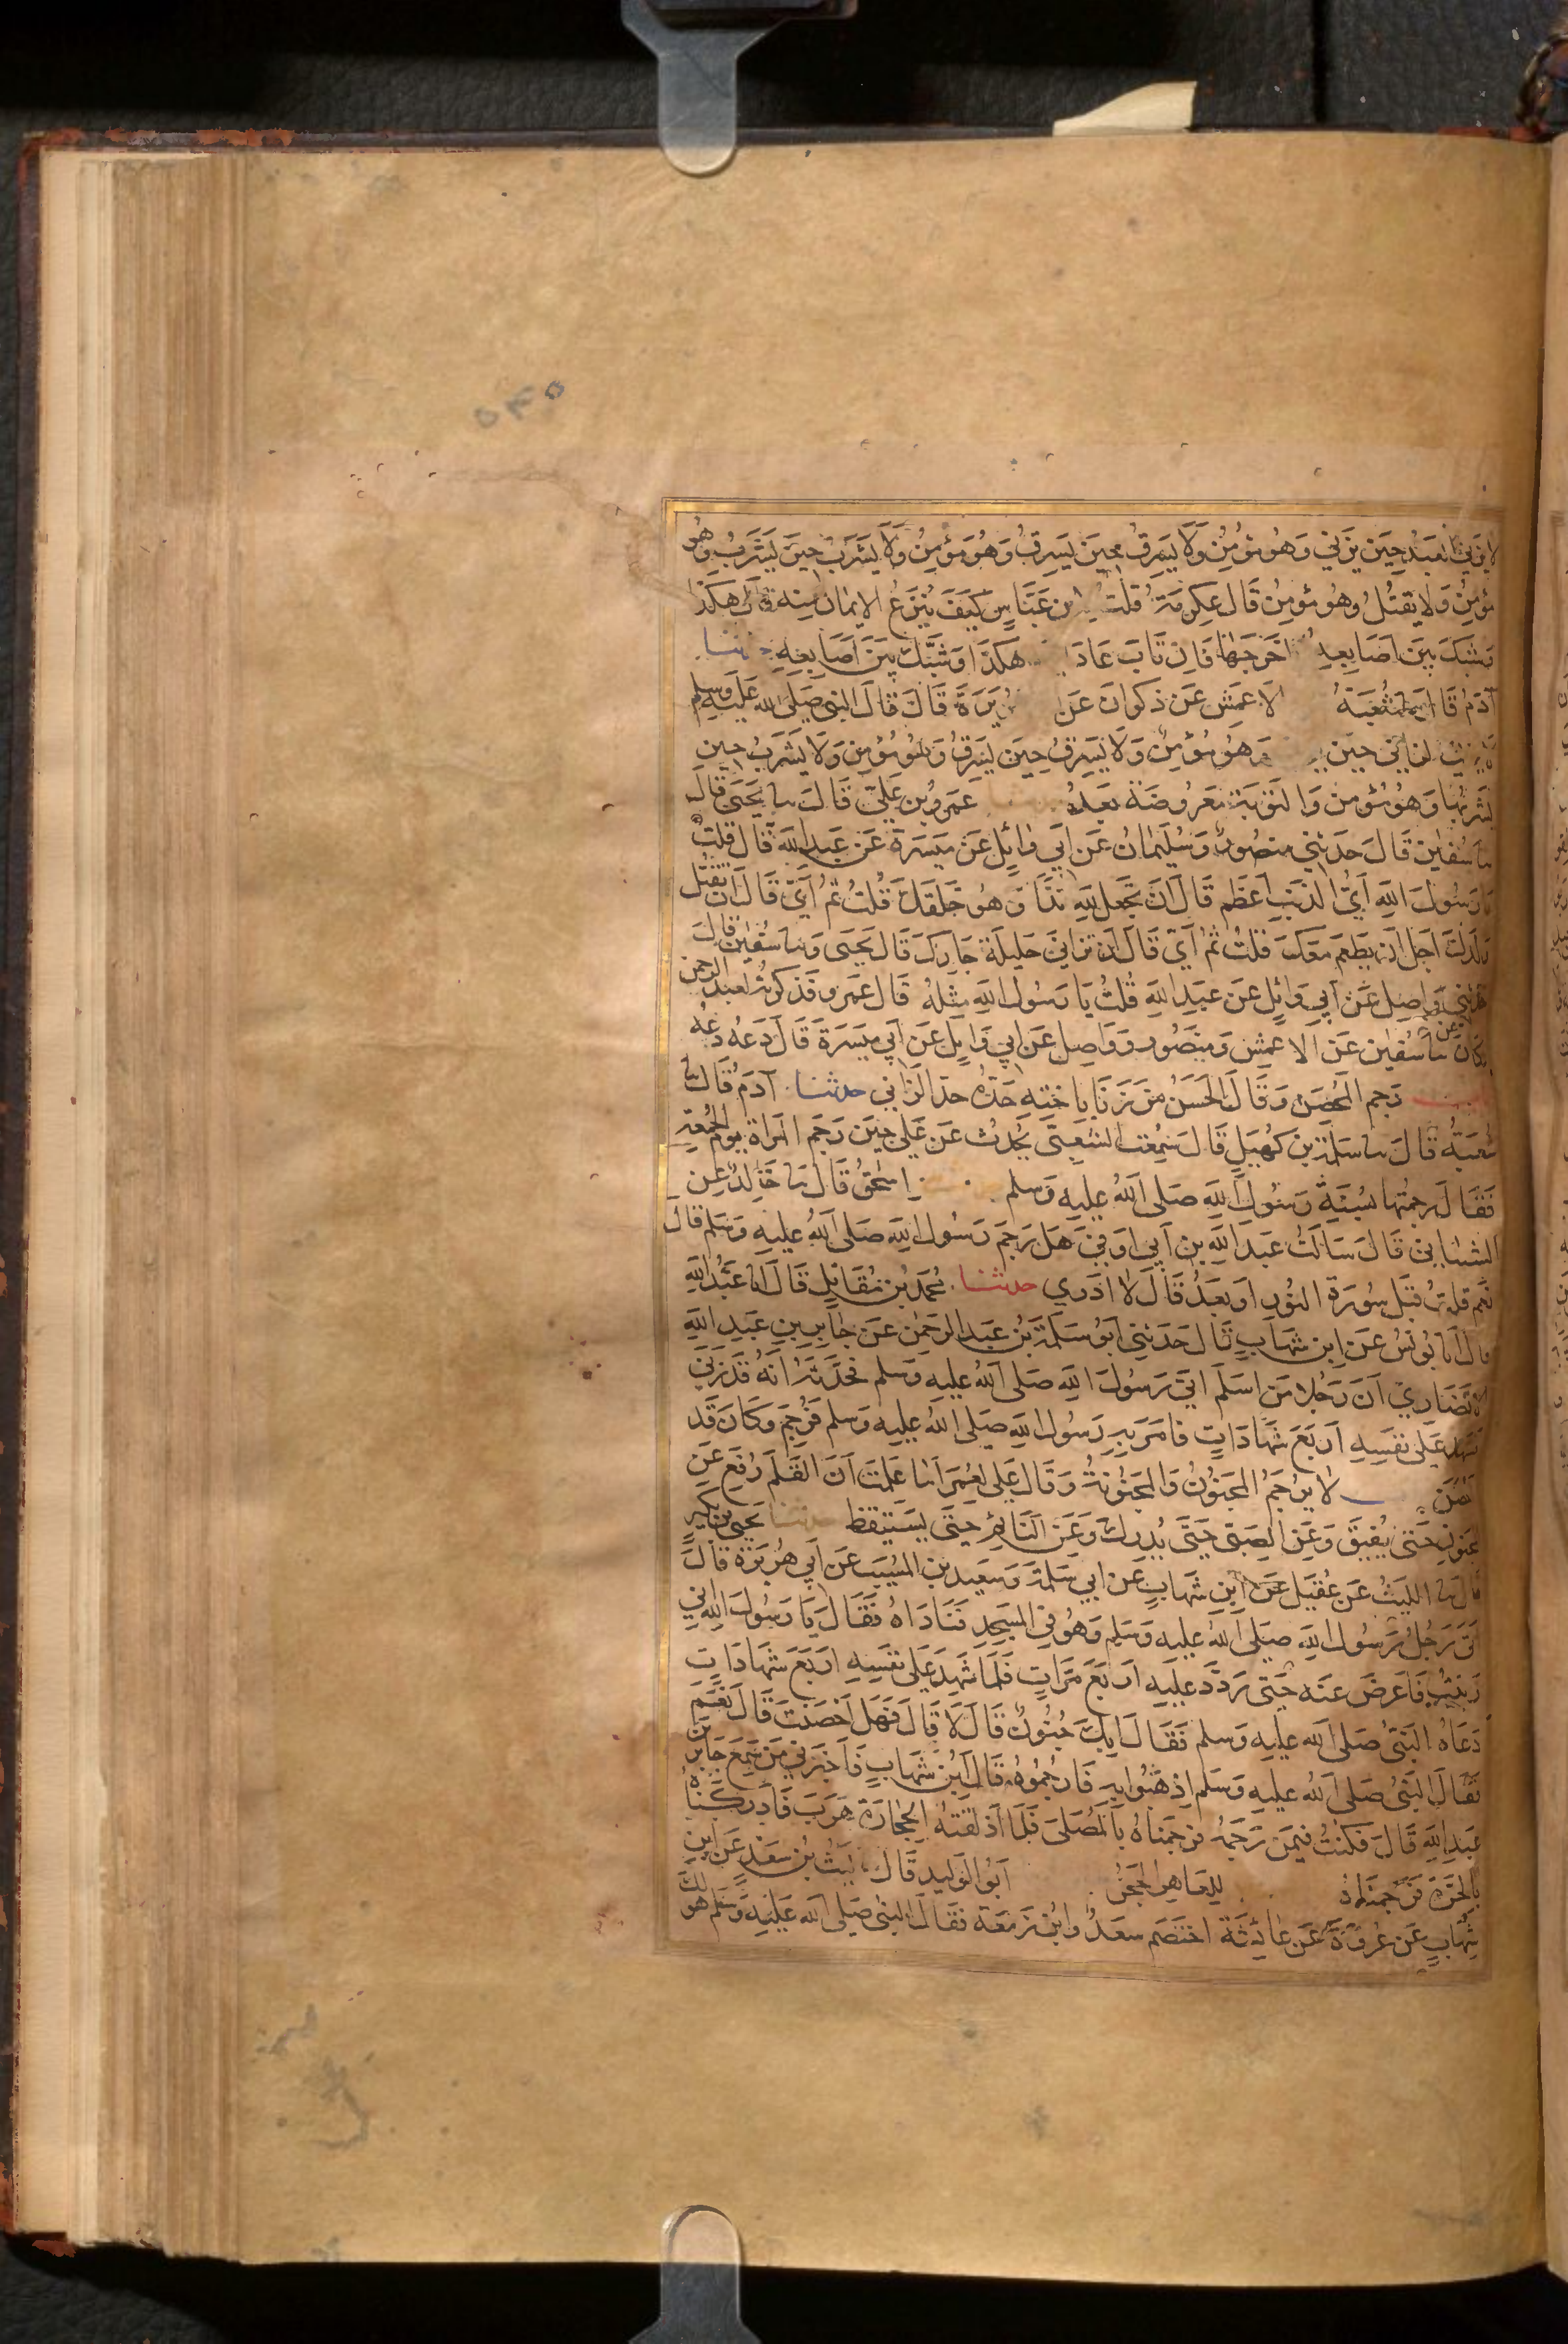 ٥٣٥
لا يزني العبد حين يزني وهو مؤمن ولا يسرق حين يسرق وهو مؤمن ولا يشرب حين يشرب وهو
مؤمن ولا يقتل وهو مؤمن قال عكرمة قلت لابن عباس كيف ينزع الايمان منه قال هكذا
وشبك بين اصابعه اخرجها فان تاب عاد هكذا وشبك بين اصابعه حدثنا
آدم قال شعبة الاعمش عن ذكوان عن قال قال النبي صلى الله عليه وسلم
الزاني حين وهو مؤمن ولا يسرق حين يسرق وهو مؤمن ولا يشرب حين
يشربها وهو مؤمن والتوبة معروضة بعد عمرو بن علي قال نا يحيى قال
نا سفين قال حدثني منصور وسليمان عن ابي وائل عن ميسرة عن عبد الله قال قلت
يا رسول الله اي الذنب اعظم قال ان تجعل لله ندا وهو خلقك قلت ثم اي قال ان تقتل
ولدك اجل ان يطعم معك قلت ثم اي قال ان تزاني حليلة جارك قال يحيى ونا سفين قال
حدثني واصل عن ابي وائل عن عبد الله قلت يا رسول الله مثله قال عمرو فذكرته لعبد الرحمن
وكان نا سفين عن الاعمش ومنصور وواصل عن ابي وائل عن ابي ميسرة قال دعه دعه
رجم المحصن وقال الحسن من زنا باخته حده حد الزاني حدثنا آدم قال نا
شعبة قال نا سلمة بن كهيل قال سمعت الشعبي يحدث عن علي حين رجم المراة يوم الجمعة
فقال رجمتها بسنة رسول الله صلى الله عليه وسلم اسحق قال نا خالد عن
الشيباني قال سالت عبد الله بن ابي اوفى هل رجم رسول الله صلى الله عليه وسلم قال
نعم قلت قبل سورة النور او بعد قال لا ادري حدثنا محمد بن مقاتل قال انا عبد الله
قال انا يونس عن ابن شهاب قال حدثني ابو سلمة بن عبد الرحمن عن جابر بن عبد الله
الانصاري ان رجلا من اسلم اتى رسول الله صلى الله عليه وسلم فحدثه انه قد زنى
شهد على نفسه اربع شهادات فامر به رسول الله صلى الله عليه وسلم فرجم وكان قد
احصن لا يرجم المجنون والمجنونة وقال علي لعمر اما علمت ان القلم رفع عن
المجنون حتى يفيق وعن الصبي حتى يدرك وعن النائم حتى يستيقظ حدثنا يحيى بن بكير
قال نا الليث عن عقيل عن ابن شهاب عن ابي سلمة وسعيد بن المسيب عن ابي هريرة قال
اتى رجل رسول الله صلى الله عليه وسلم وهو في المسجد فناداه فقال يا رسول الله اني
زنيت فاعرض عنه حتى ردد عليه اربع مرات فلما شهد على نفسه اربع شهادات
دعاه النبي صلى الله عليه وسلم فقال ابك جنون قال لا قال فهل احصنت قال نعم
فقال النبي صلى الله عليه وسلم اذهبوا به فارجموه قال ابن شهاب فاخبرني من سمع جابر بن
عبد الله قال فكنت فيمن رجمه فرجمناه بالمصلى فلما اذلقته الحجارة هرب فادركناه
بالحرة فرجمناه للعاهر الحجر ابو الوليد قال ليث بن سعد عن ابن
شهاب عن عروة عن عائشة اختصم سعد وابن زمعة فقال النبي صلى الله عليه وسلم هو لك